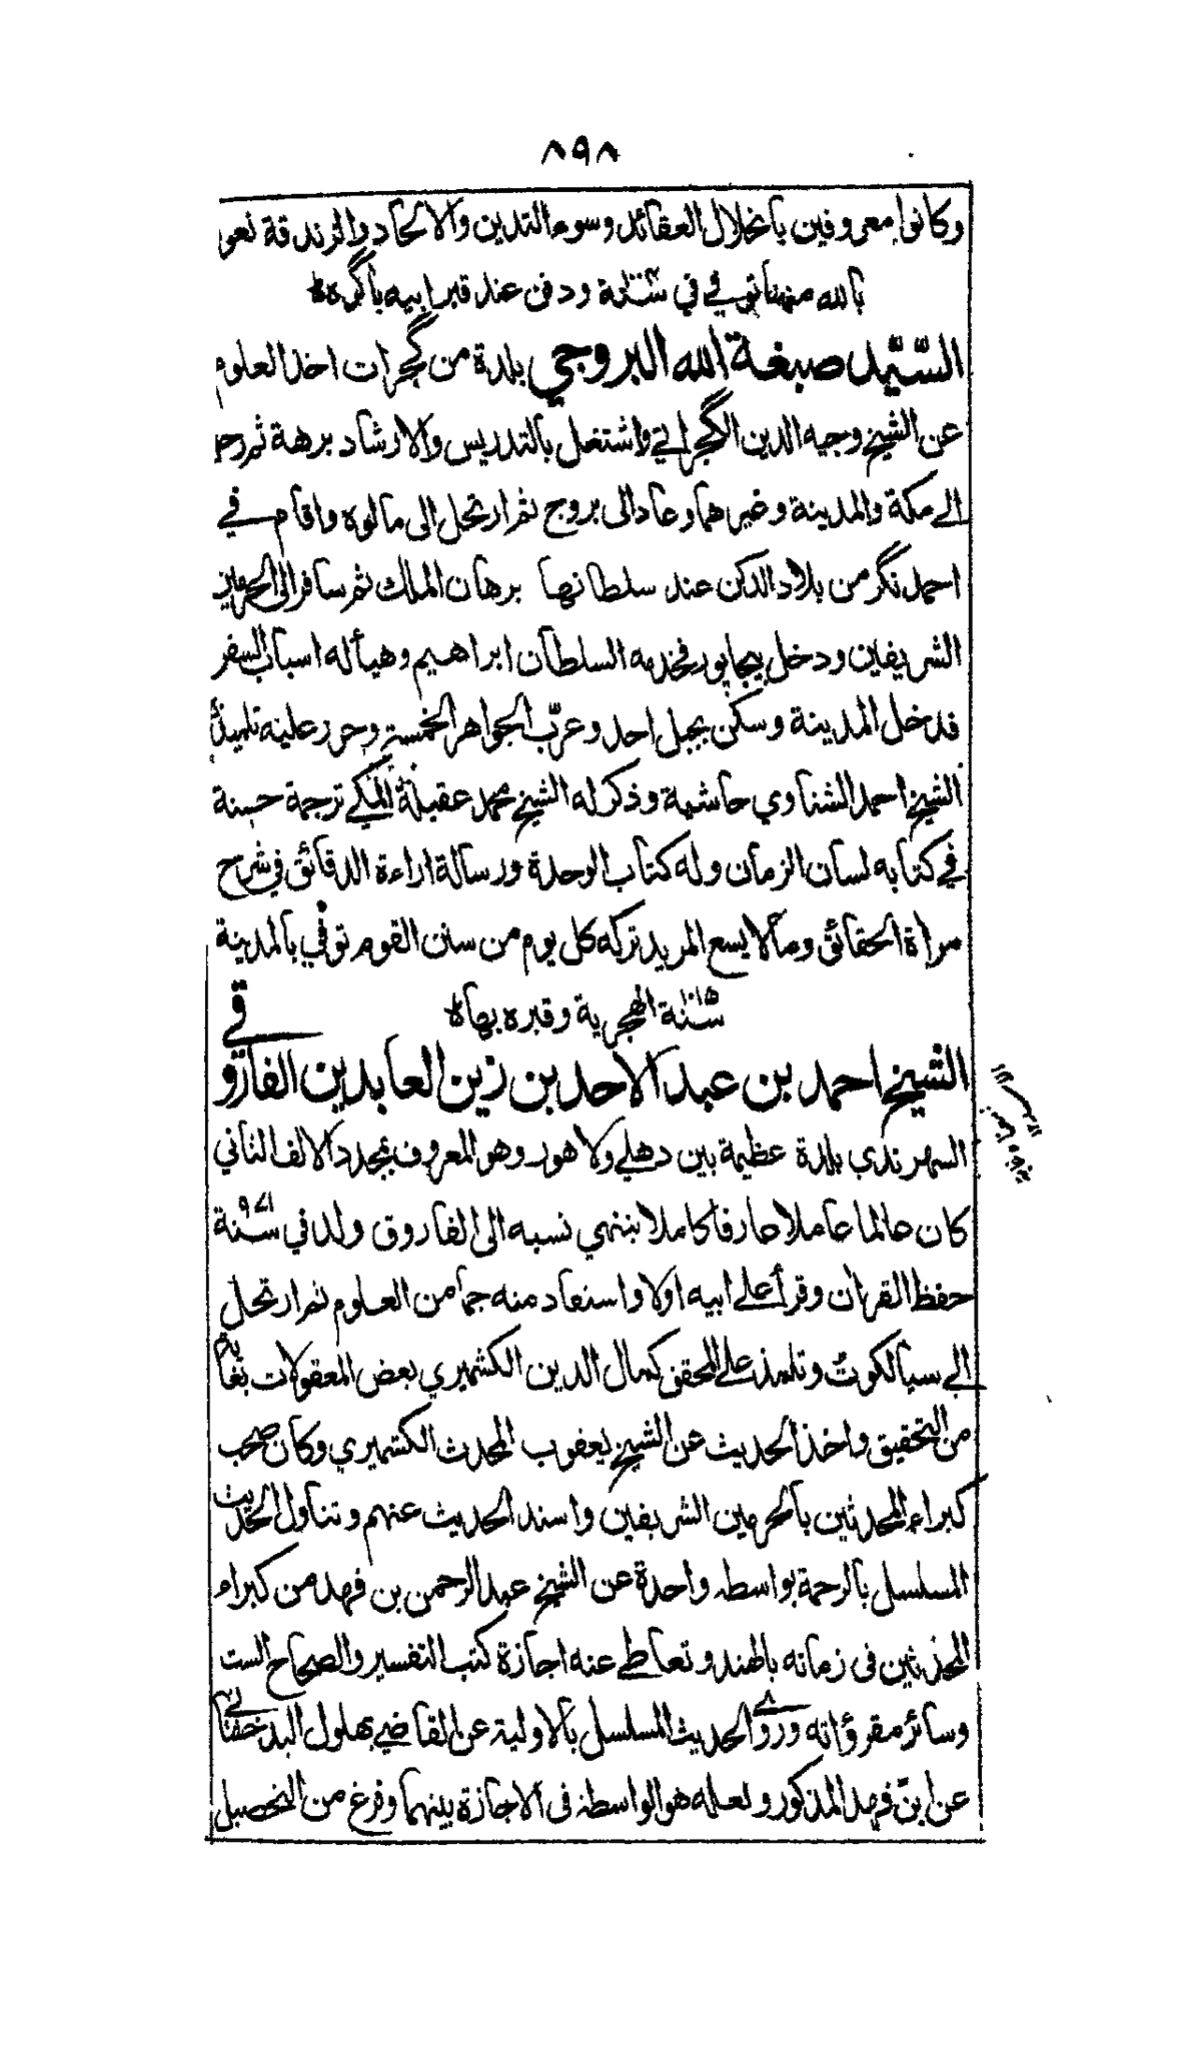 ٨٩٨
وكانوا معروفين بانحلال العقائد وسوء التدين والالحاد والزندقة نعو
بالله منها توفي في سنة ودفن عند قبر ابيه باگره
السّيّد صبغة الله البروجي بلدة من گجرات اخذ العلوم
عن الشيخ وجيه الدين الگجراتي واشتغل بالتدريس والارشاد برهة ثم رحل
الى مكة والمدينة وغيرهما وعاد الى بروج ثم ارتحل الى مالوه واقام في
احمد نگر من بلاد الدكن عند سلطانها برهان الملك ثم سافر الى الحرمين
الشريفين ودخل بيجاپور فخدمه السلطان ابراهيم وهيأ له اسباب السفر
فدخل المدينة وسكن بجبل احد وعرّب الجواهر الخمسة وحرر عليه تلميذه
الشيخ احمد الشناوي حاشية وذكر له الشيخ محمد عقيلة المكي ترجمة حسنة
في كتابه لسان الزمان وله كتاب الوحدة ورسالة اراءة الدقائق في شرح
مرأة الحقائق وما لا يسع المريد تركه كل يوم من سنن القوم توفي بالمدينة
سنة الهجرية وقبره بها
الشيخ احمد بن عبد الاحد بن زين العابدين الفاروقي
السهرندي بلدة عظيمة بين دهلي ولاهور وهو المعروف بمجدد الالف الثاني
كان عالما عاملا عارفا كاملا ينتهي نسبه الى الفاروق ولد في سنة ٩٧١
حفظ القران وقرأ على ابيه اولا واستفاد منه جما من العلوم ثم ارتحل
الى سيالكوت وتلمذ على المحقق كمال الدين الكشميري بعض المعقولات بغاية
من التحقيق واخذ الحديث عن الشيخ يعقوب المحدث الكشميري وكان صحب
كبراء المحدثين بالحرمين الشريفين واسند الحديث عنهم وتناول الحديث
المسلسل بالرحمة بواسطة واحدة عن الشيخ عبد الرحمن بن فهد من كبراء
المحدثين في زمانه بالهند وتعاطى عنه اجازة كتب التفسير والصحاح الست
وسائر مقرؤاته وروى الحديث المسلسل بالاولية عن القاضي بهلول البدخشاني
عن ابن فهد المذكور ولعله هو الواسطة في الاجازة بينهما وفرغ من التحصيل